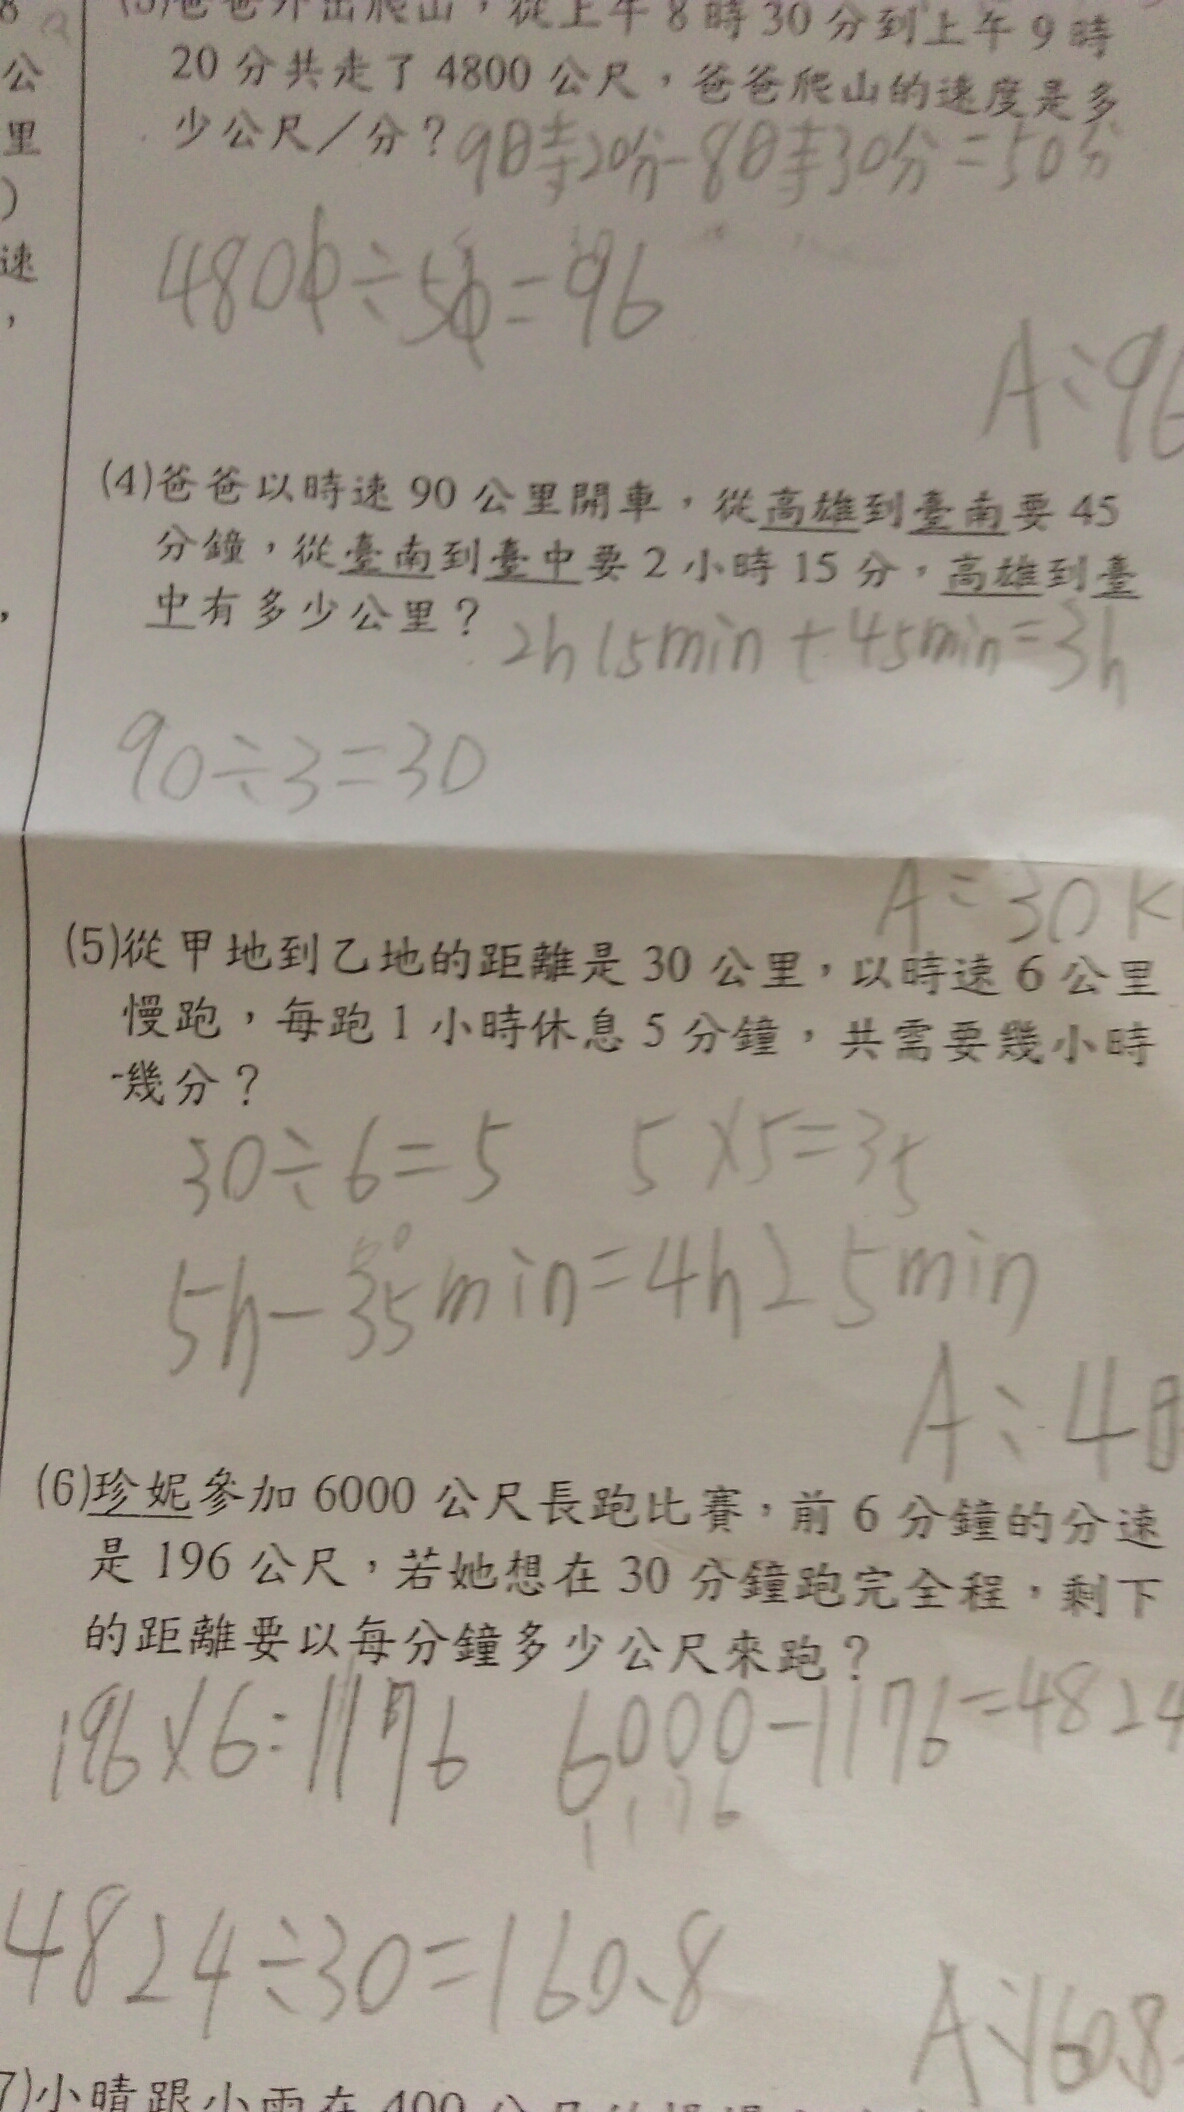 (3)爸爸外出爬山，從上午8時30分到上午9時
20分共走了4800公尺，爸爸爬山的速度是多
少公尺／分？
9時20分-8時30分=50分
4800÷50=96
A:96
公
里
)
速
，
(4)爸爸以時速90公里開車，從高雄到臺南要45
分鐘，從臺南到臺中要2小時15分，高雄到臺
中有多少公里？
2h15min+45min=3h
90÷3=30
A:30K
，
(5)從甲地到乙地的距離是30公里，以時速6公里
慢跑，每跑1小時休息5分鐘，共需要幾小時
幾分？
30÷6=5 5×5=35
5h-35min=4h25min
A:4
(6)珍妮參加6000公尺長跑比賽，前6分鐘的分速
是196公尺，若她想在30分鐘跑完全程，剩下
的距離要以每分鐘多少公尺來跑？
196×6=1176 6000-1176=4824
1176
4824÷30=160.8
A:160.8
7)小晴跟小雨在400公尺的操場